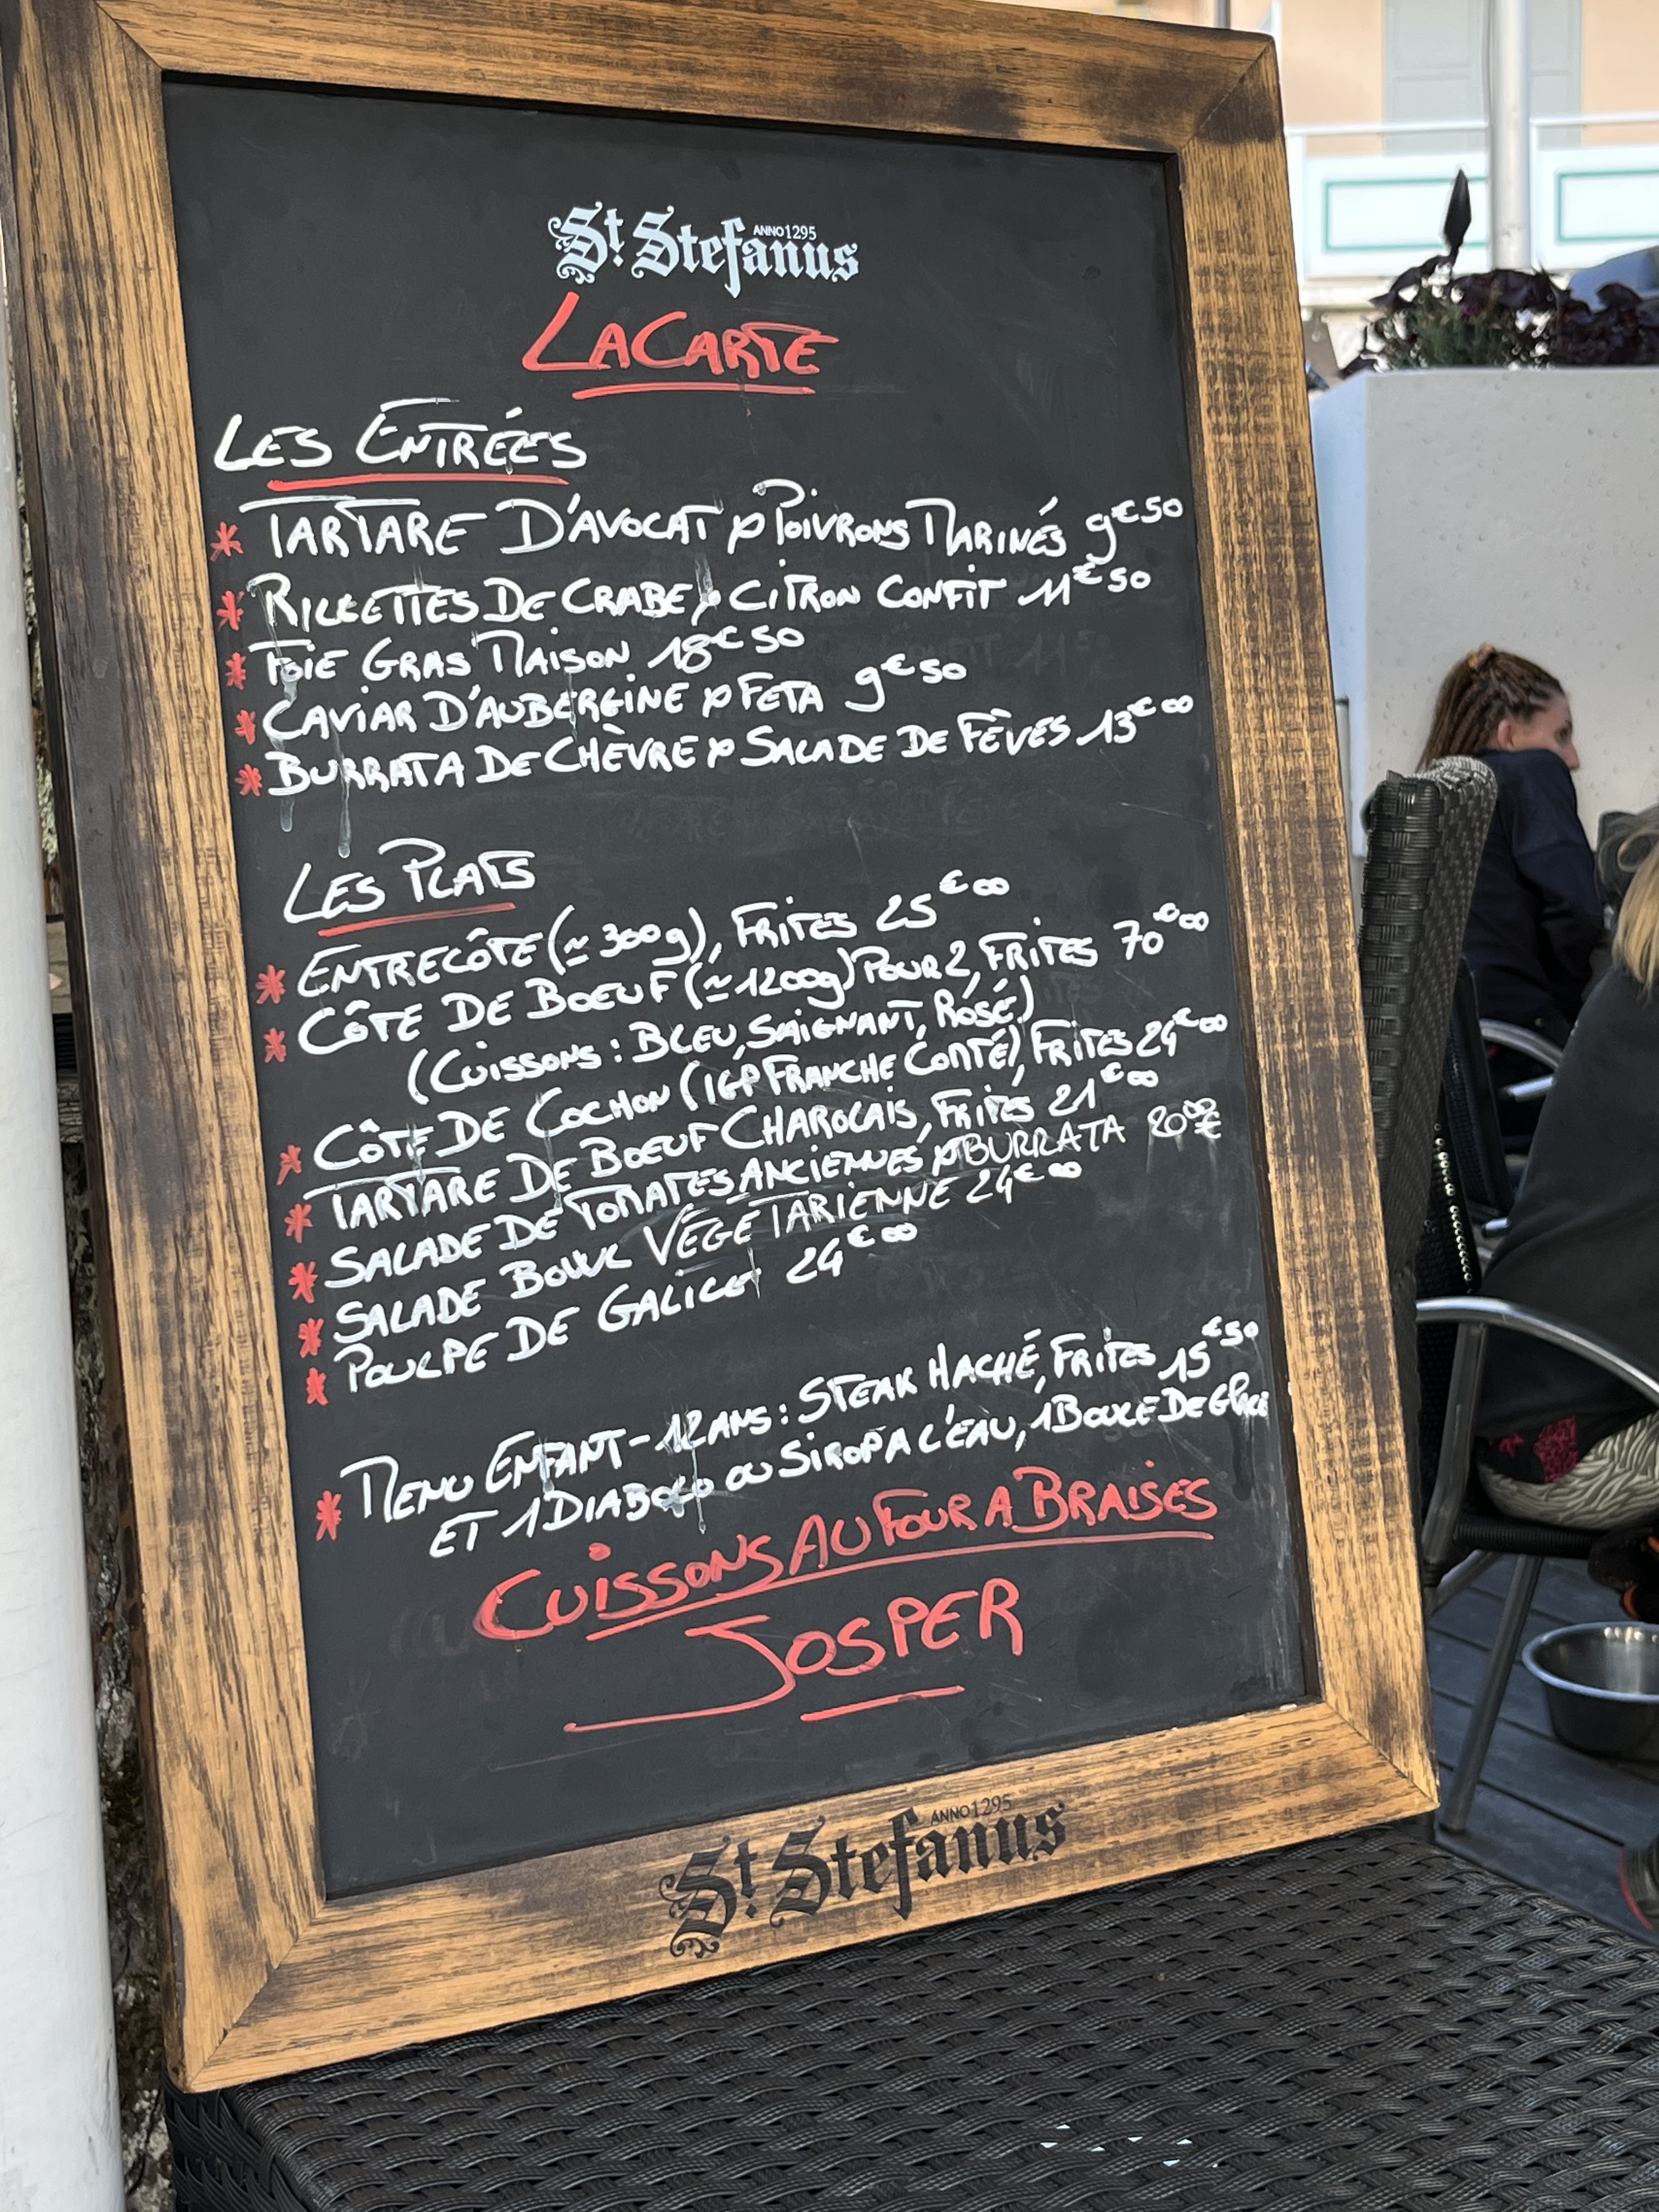 St Stefanus
ANNO 1295
LA CARTE
LES ENTRÉES
* TARTARE D'AVOCAT & POIVRONS MARINÉS 9€50
* RILLETTES DE CRABE & CITRON CONFIT 11€50
* FOIE GRAS MAISON 18€50
* CAVIAR D'AUBERGINE & FETA 9€50
* BURRATA DE CHÈVRE & SALADE DE FÈVES 13€00
LES PLATS
* ENTRECÔTE (≃ 300g), FRITES 25€00
* CÔTE DE BOEUF (≃ 1200g) POUR 2, FRITES 70€00
(CUISSONS : BLEU, SAIGNANT, ROSÉ)
* CÔTE DE COCHON (IGP FRANCHE COMTÉ), FRITES 24€00
* TARTARE DE BOEUF CHAROLAIS, FRITES 21€00
* SALADE DE TOMATES ANCIENNES & BURRATA 20€00
* SALADE BOWL VÉGÉTARIENNE 24€00
* POULPE DE GALICE 24€00
* MENU ENFANT - 12 ANS : STEAK HACHÉ, FRITES 15€50
ET 1 DIABOLO OU SIROP A L'EAU, 1 BOULE DE GLACE
CUISSONS AU FOUR A BRAISES
JOSPER
St Stefanus
ANNO 1295